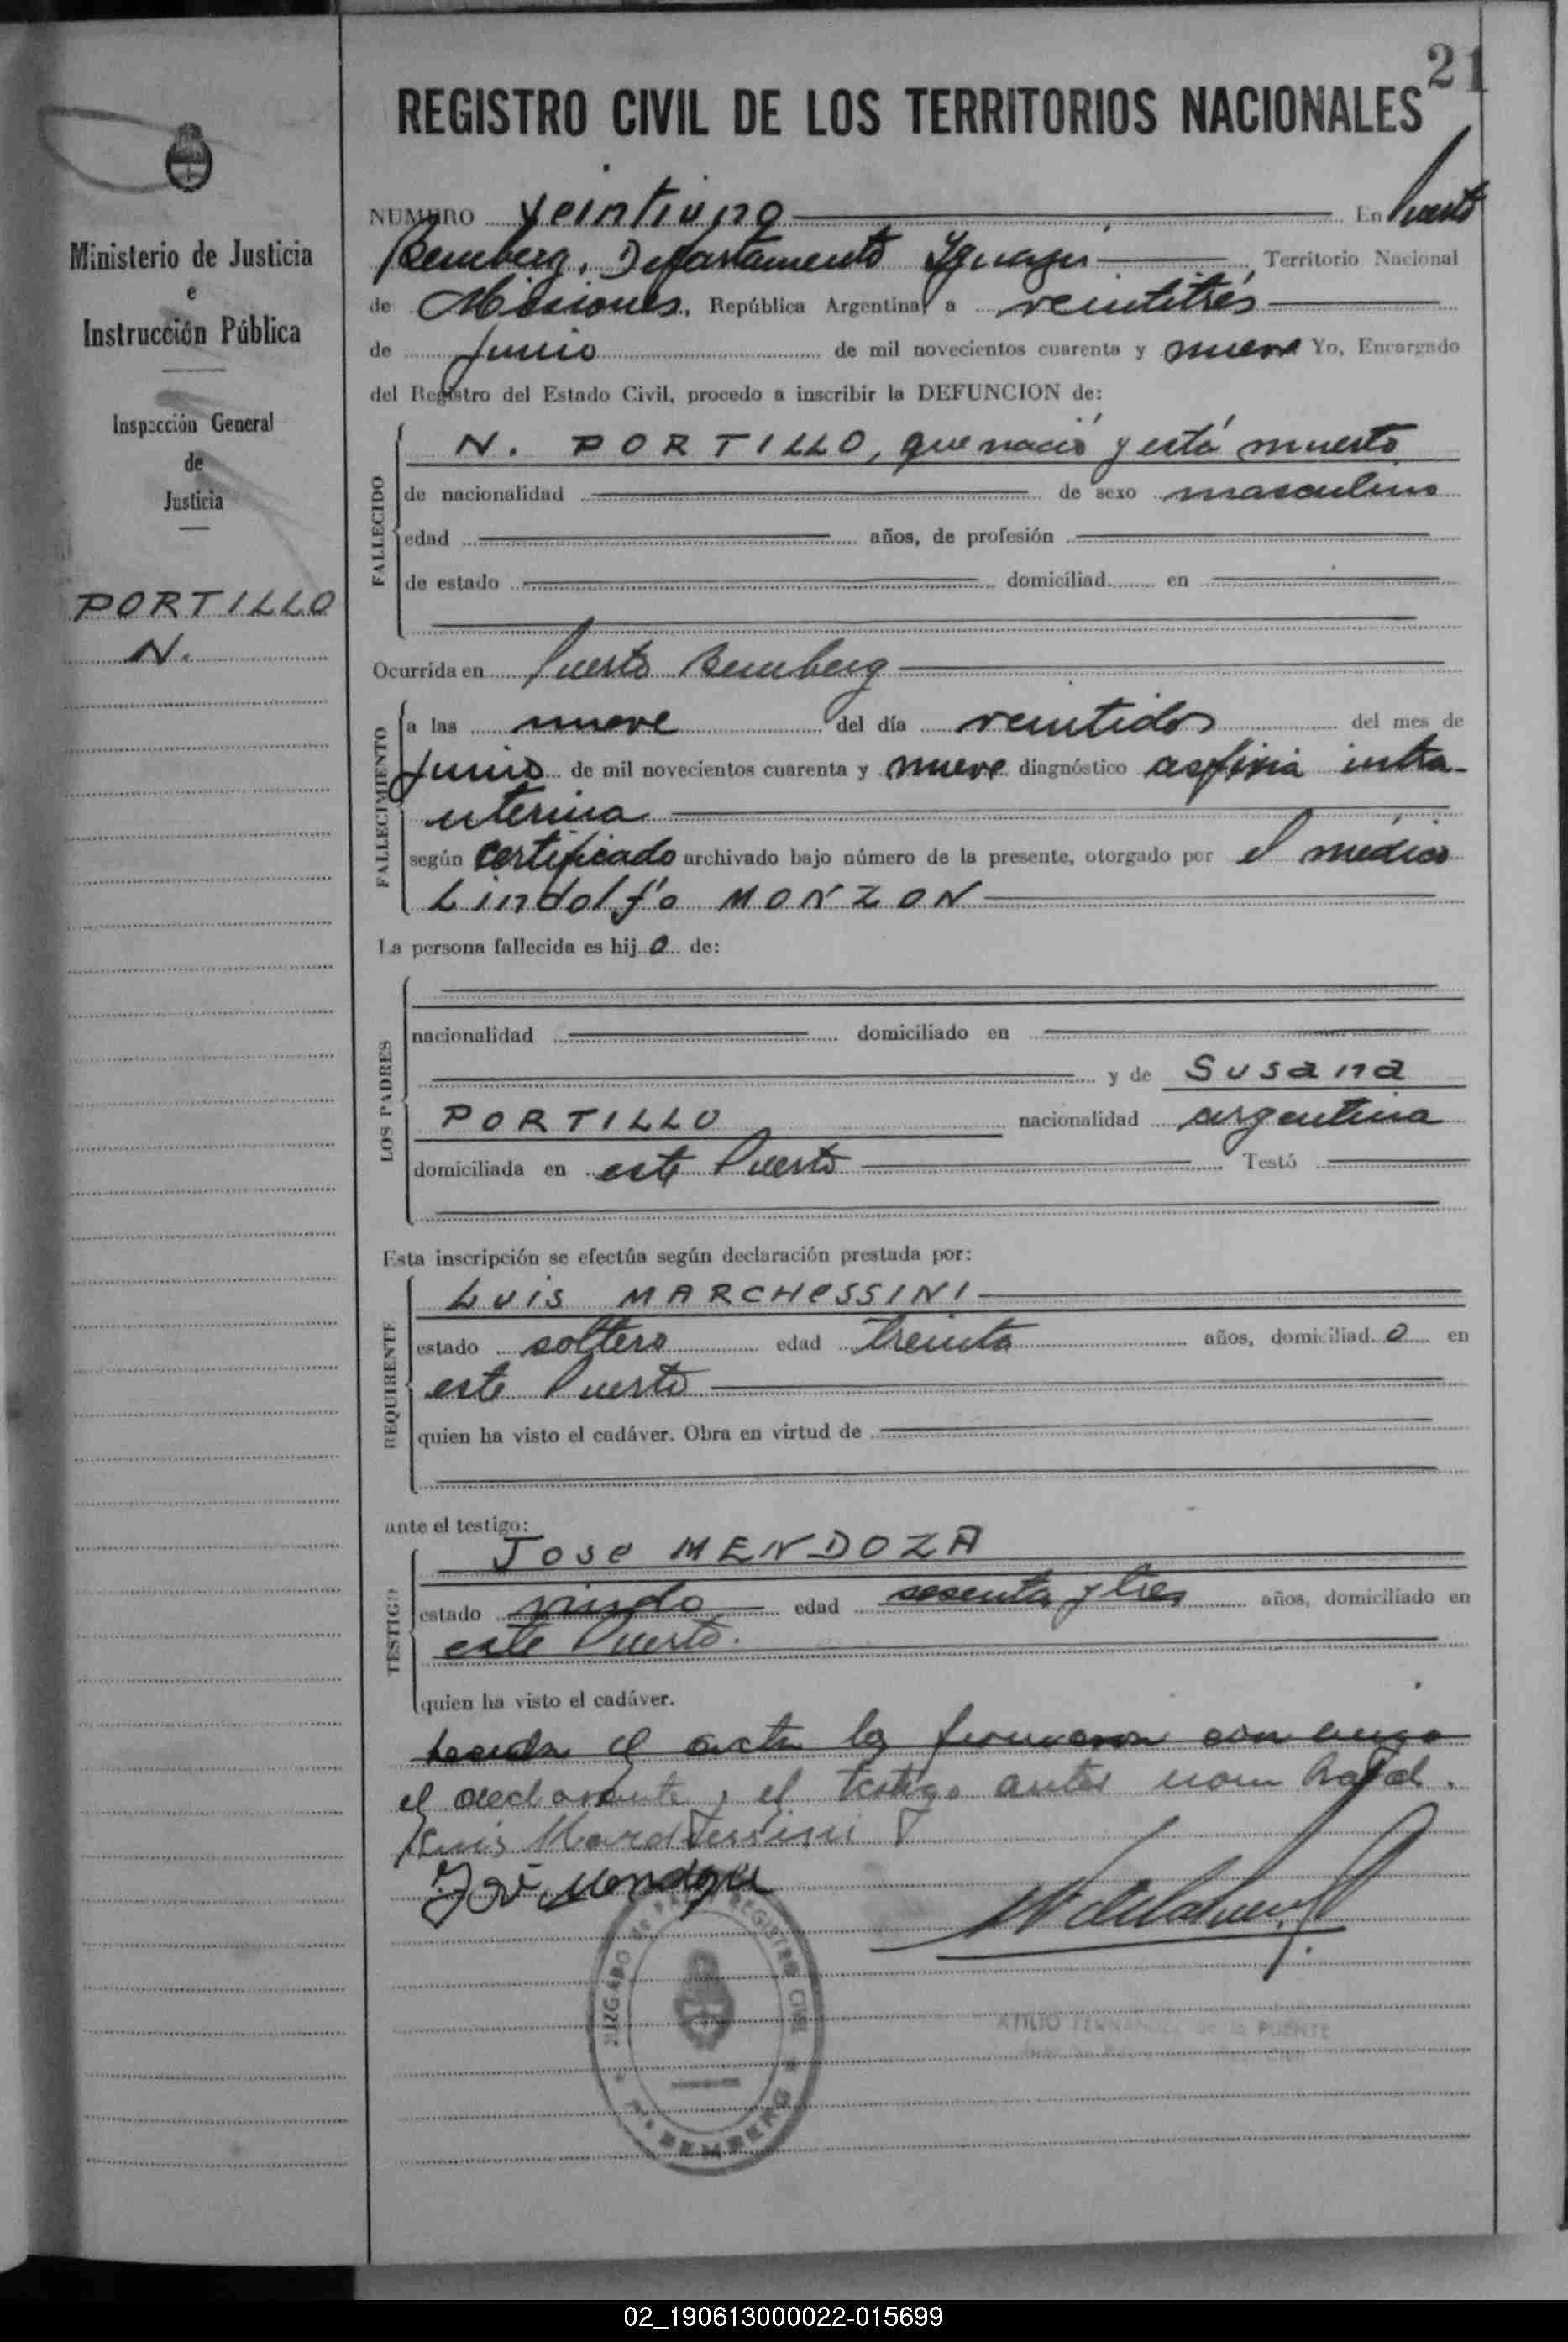 21
REGISTRO CIVIL DE LOS TERRITORIOS NACIONALES
Ministerio de Justicia
e
Instrucción Pública
Inspección General
de
Justicia
PORTILLO
N.
NUMERO veintiuno En Puerto
Bemberg, Departamento Iguazú Territorio Nacional
de Misiones, República Argentina, a veintitrés
de Junio de mil novecientos cuarenta y nueve Yo, Encargado
del Registro del Estado Civil, procedo a inscribir la DEFUNCION de:
FALLECIDO
N. PORTILLO, que nació y está muerto
de nacionalidad de sexo masculino
edad años, de profesión
de estado domiciliad en
Ocurrida en Puerto Bemberg
FALLECIMIENTO
a las nueve del día veintidos del mes de
Junio de mil novecientos cuarenta y nueve diagnóstico asfixia intra-
uterina
según certificado archivado bajo número de la presente, otorgado por el médico
Lindolfo MONZON
La persona fallecida es hijo de:
LOS PADRES
nacionalidad domiciliado en
y de Susana
PORTILLO nacionalidad argentina
domiciliada en este Puerto Testó
Esta inscripción se efectúa según declaración prestada por:
REQUIRENTE
Luis MARCHESSINI
estado soltero edad treinta años, domiciliado en
este Puerto
quien ha visto el cadáver. Obra en virtud de
ante el testigo:
TESTIGO
Jose MENDOZA
estado viudo edad sesenta y tres años, domiciliado en
este Puerto.
quien ha visto el cadáver.
el acta la firmaron con
el declarante, el testigo antes
Luis Marchessini
José Mendoza
JUZGADO DE PAZ Y REGISTRO CIVIL
Pto. BEMBERG
ATILIO FERNANDEZ de la PUENTE
02_190613000022-015699